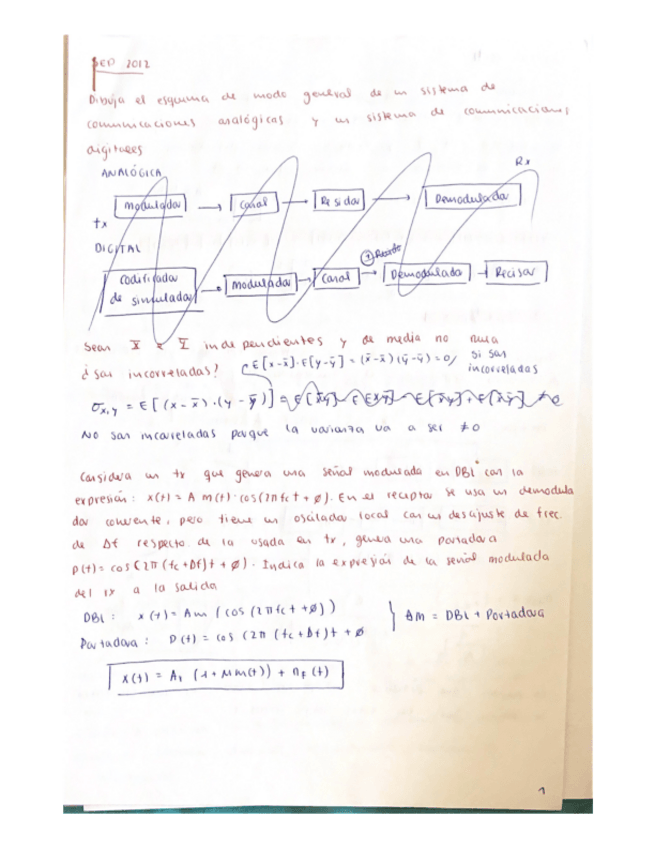 SEP 2012
Dibuja el esquema de modo general de un sistema de
comunicaciones analógicas y un sistema de comunicaciones
digitales
ANALÓGICA
Rx
modulador → canal → → Demodulador
tx
DIGITAL
Ruido
codificador de → modulador → canal → Demodulador → 
Sean X e Y independientes y de media no nula
¿son incorreladas?
E[x-x̄]·E[y-ȳ] = (x̄-x̄)(ȳ-ȳ) = 0
si son
incorreladas
σx,y = E[(x-x̄)·(y-ȳ)] =
No son incorreladas porque la varianza va a ser ≠0
Considera un tx que genera una señal modulada en DBL con la
expresión: x(t) = A m(t)·cos(2πfct + ø). En el receptor se usa un demodula
dor coherente, pero tiene un oscilador local con un desajuste de frec.
de Δf respecto de la usada en tx, genera una portadora
p(t) = cos(2π(fc+Δf)t + ø). Indica la expresión de la señal modulada
del rx a la salida
DBL: x(t) = Am (cos(2πfct + ø))
Portadora: p(t) = cos(2π(fc+Δf)t + ø
} AM = DBL + Portadora
(1+μm(t)) + (t)
1